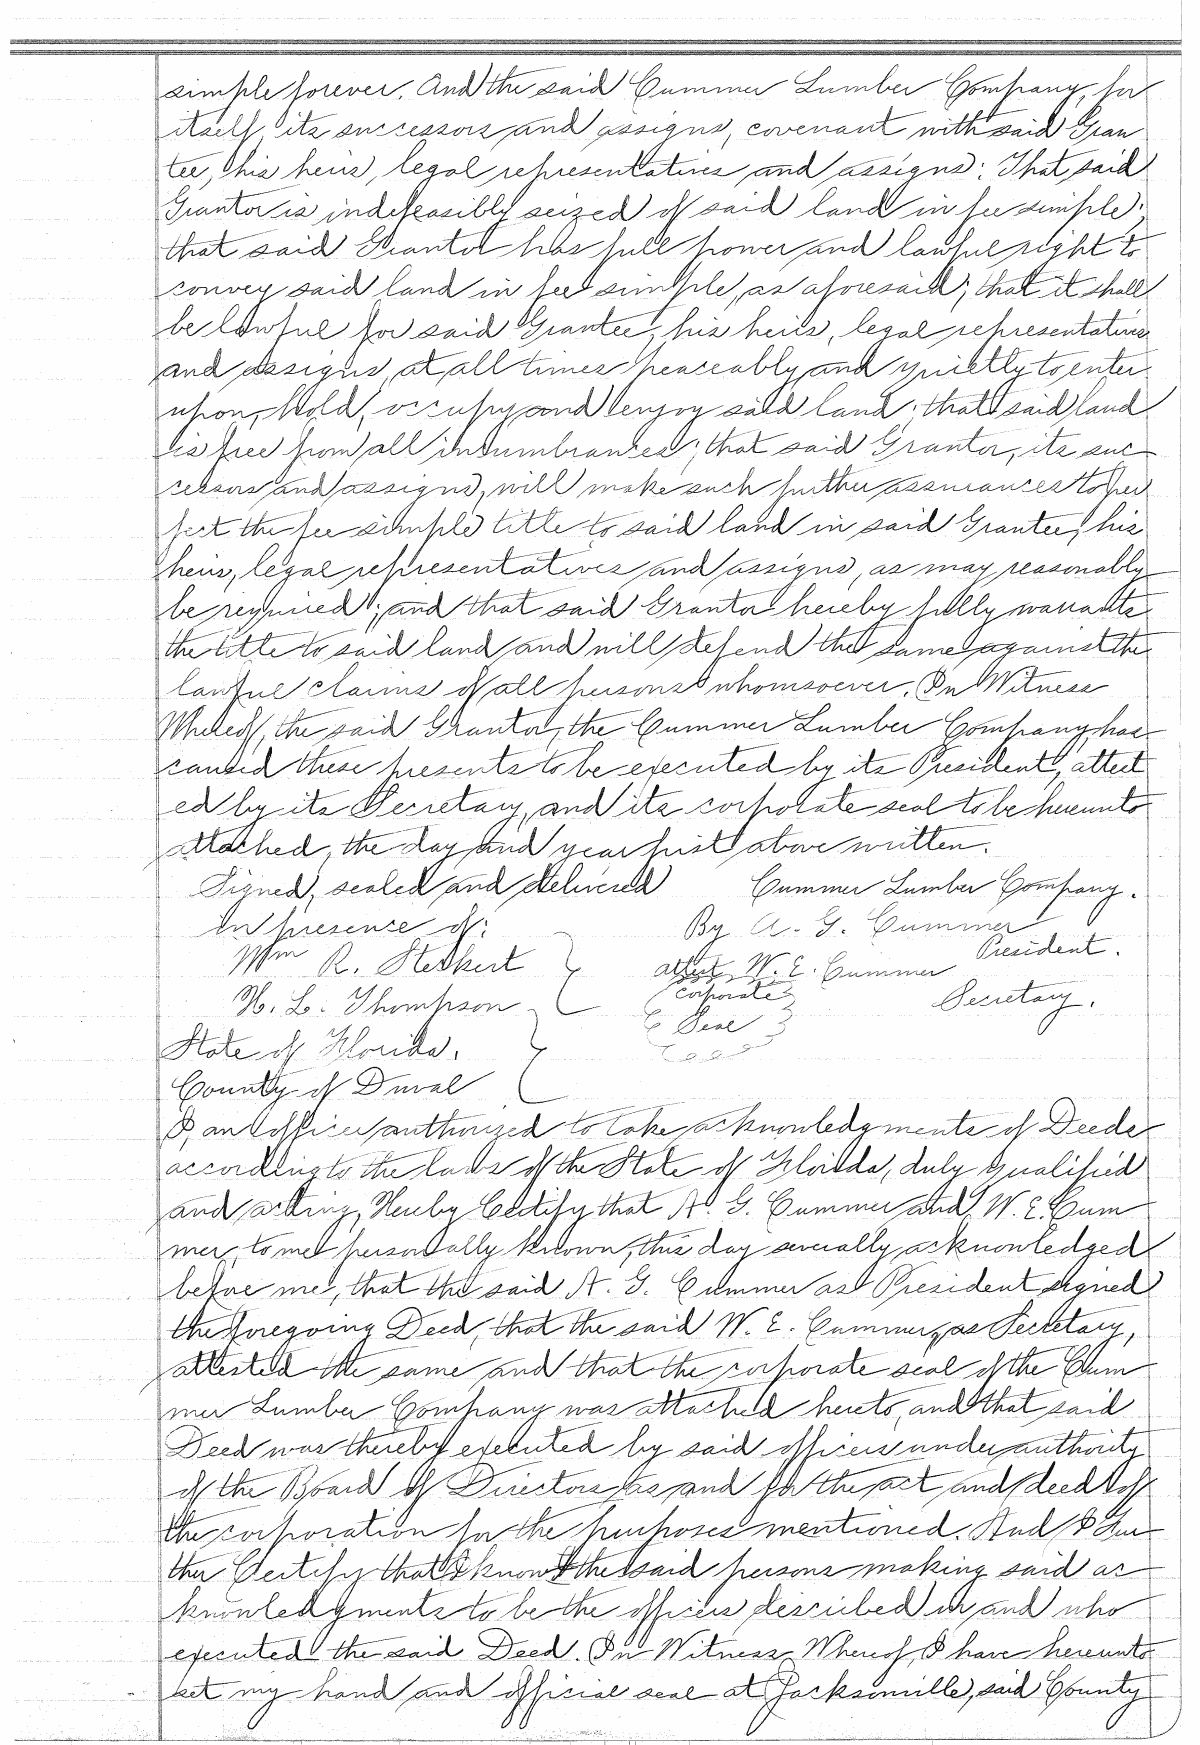 simple forever. And the said Cummer Lumber Company, for
itself, its successors and assigns, covenant with said Gran
tee, his heirs, legal representatives and assigns: That said
Grantor is indefeasibly seized of said land in fee simple;
that said Grantor has full power and lawful right to
convey said land in fee simple, as aforesaid; that it shall
be lawful for said Grantee, his heirs, legal representatives
and assigns, at all times peaceably and quietly to enter
upon, hold, occupy and enjoy said land; that said land
is free from all incumbrances; that said Grantor, its suc
cessors and assigns, will make such further assurances to per
fect the fee simple title to said land in said Grantee, his
heirs, legal representatives and assigns, as may reasonably
be required; and that said Grantor hereby fully warrants
the title to said land and will defend the same against the
lawful claims of all persons whomsoever. In Witness
Whereof, the said Grantor, the Cummer Lumber Company, has
caused these presents to be executed by its President, attest
ed by its Secretary, and its corporate seal to be hereunto
attached, the day and year first above written.
Signed, sealed and delivered Cummer Lumber Company.
in presence of: By A. G. Cummer
President.
Wm R. Steckert attest W. E. Cummer
H. L. Thompson Corporate Secretary.
Seal
State of Florida,
County of Duval
I, an officer authorized to take acknowledgments of Deeds
according to the laws of the State of Florida, duly qualified
and acting, Hereby Certify that A. G. Cummer and W. E. Cum
mer, to me personally known, this day severally acknowledged
before me, that the said A. G. Cummer as President signed
the foregoing Deed, that the said W. E. Cummer, as Secretary,
attested the same and that the corporate seal of the Cum
mer Lumber Company was attached hereto, and that said
Deed was thereby executed by said officers under authority
of the Board of Directors as and for the act and deed of
the corporation for the purposes mentioned. And I Fur
ther Certify that I know the said persons making said ac
knowledgments to be the officers described in and who
executed the said Deed. In Witness Whereof, I have hereunto
set my hand and official seal at Jacksonville, said County